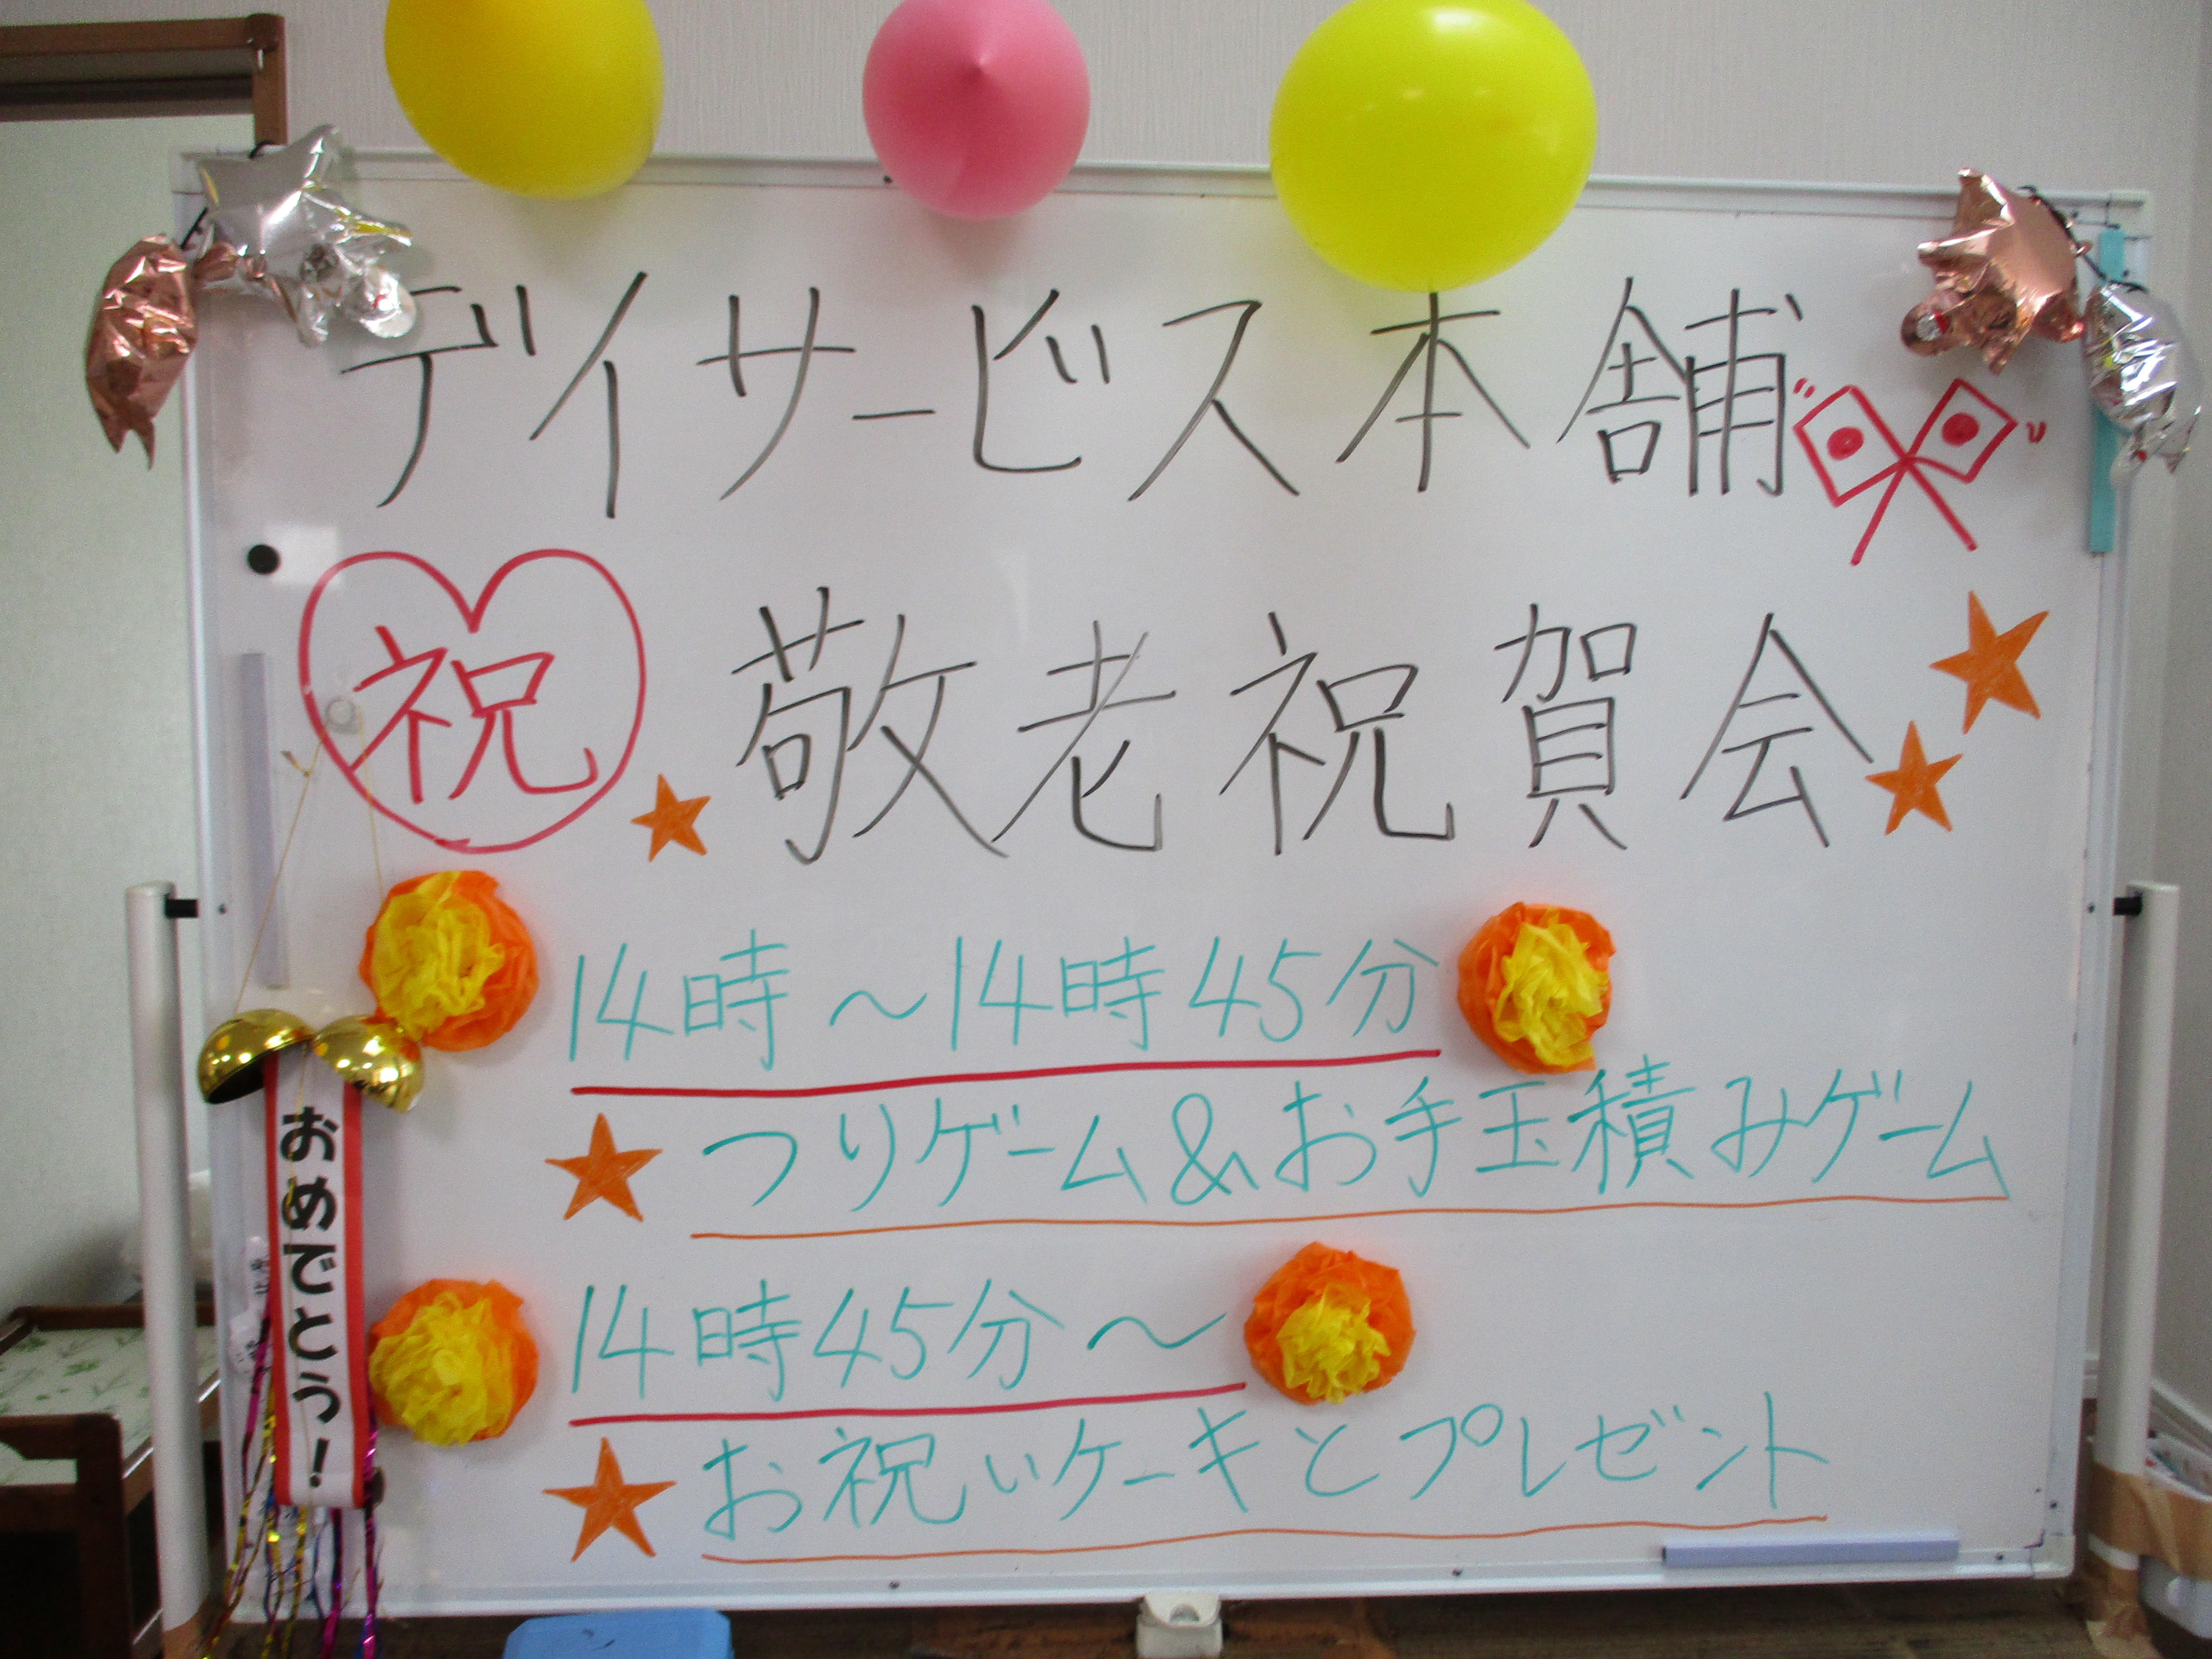 デイサービス本舗
祝
敬老祝賀会
14時～14時45分
つりゲーム&お手玉積みゲーム
おめでとう!
14時45分～
お祝いケーキとプレゼント